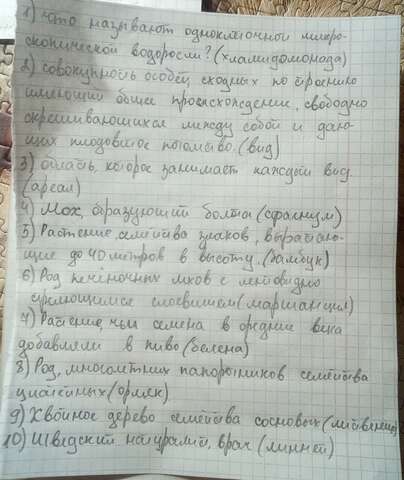 1) Что называют одноклеточной микро-
скопической водоросли? (хламидомонада)
2) совокупность особей сходных по строению
имеющий общее происхождение, свободно
скрещивающихся между собой и даю-
щих плодовитое потомство. (вид)
3) область, которое занимает каждый вид
(ареал)
4) Мох, образующий болота (сфагнум)
5) Растение, семейства злаков, выраста-
щие до 40 метров в высоту. (бамбук)
6) Род печёночных мхов с лентовидно
стелющимся слоевищем (маршанция)
7) Растение, чьи семена в средние века
добавляли в пиво (белена)
8) Род, многолетних папоротников семейства
(орляк)
9) Хвойное дерево семейства сосновых (лиственница)
10) Шведский натуралист, врач (линней)